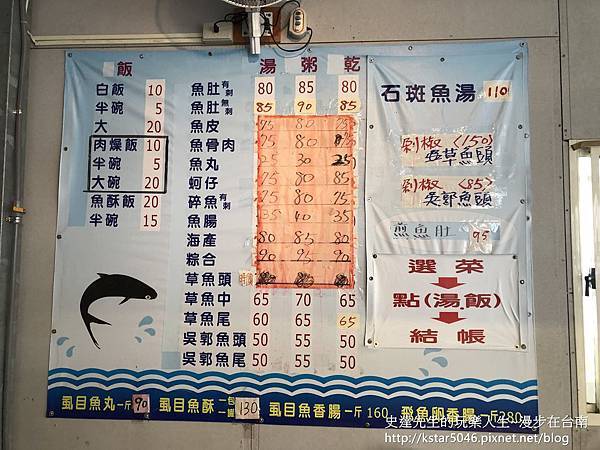 飯
白飯 10
半碗 5
大 20
肉燥飯 10
半碗 5
大碗 20
魚酥飯 20
半碗 15
湯 粥 乾
魚肚有刺 80 85 80
魚肚無刺 85 90 85
魚皮 75 80 75
魚骨肉 75 80 75
魚丸 25 30 25
蚵仔 75 80 75
碎魚有刺 75 80 75
魚腸 35 40 35
海產 80 85 80
綜合 90 95 90
草魚頭
草魚中 65 70 65
草魚尾 60 65 65
吳郭魚頭 50 55 50
吳郭魚尾 50 55 50
石斑魚湯 110
剁椒 <150>
吳草魚頭
剁椒 <85>
吳郭魚頭
煎魚肚 95
選菜
點(湯飯)
結帳
虱目魚丸一斤 90 虱目魚酥二包一罐 130 虱目魚香腸一斤 160 飛魚卵香腸一斤280
史達先生的玩樂人生-漫步在台南
http://kstar5046.pixnet.net/blog